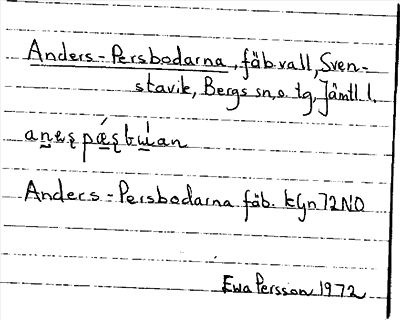 Anders-Persbodarna, fäbvall, Sven-
stavik, Bergs sn, s. tg, Jämtl. l.
Anders-Persbodarna fäb. kGn 72NO
Ewa Persson 1972